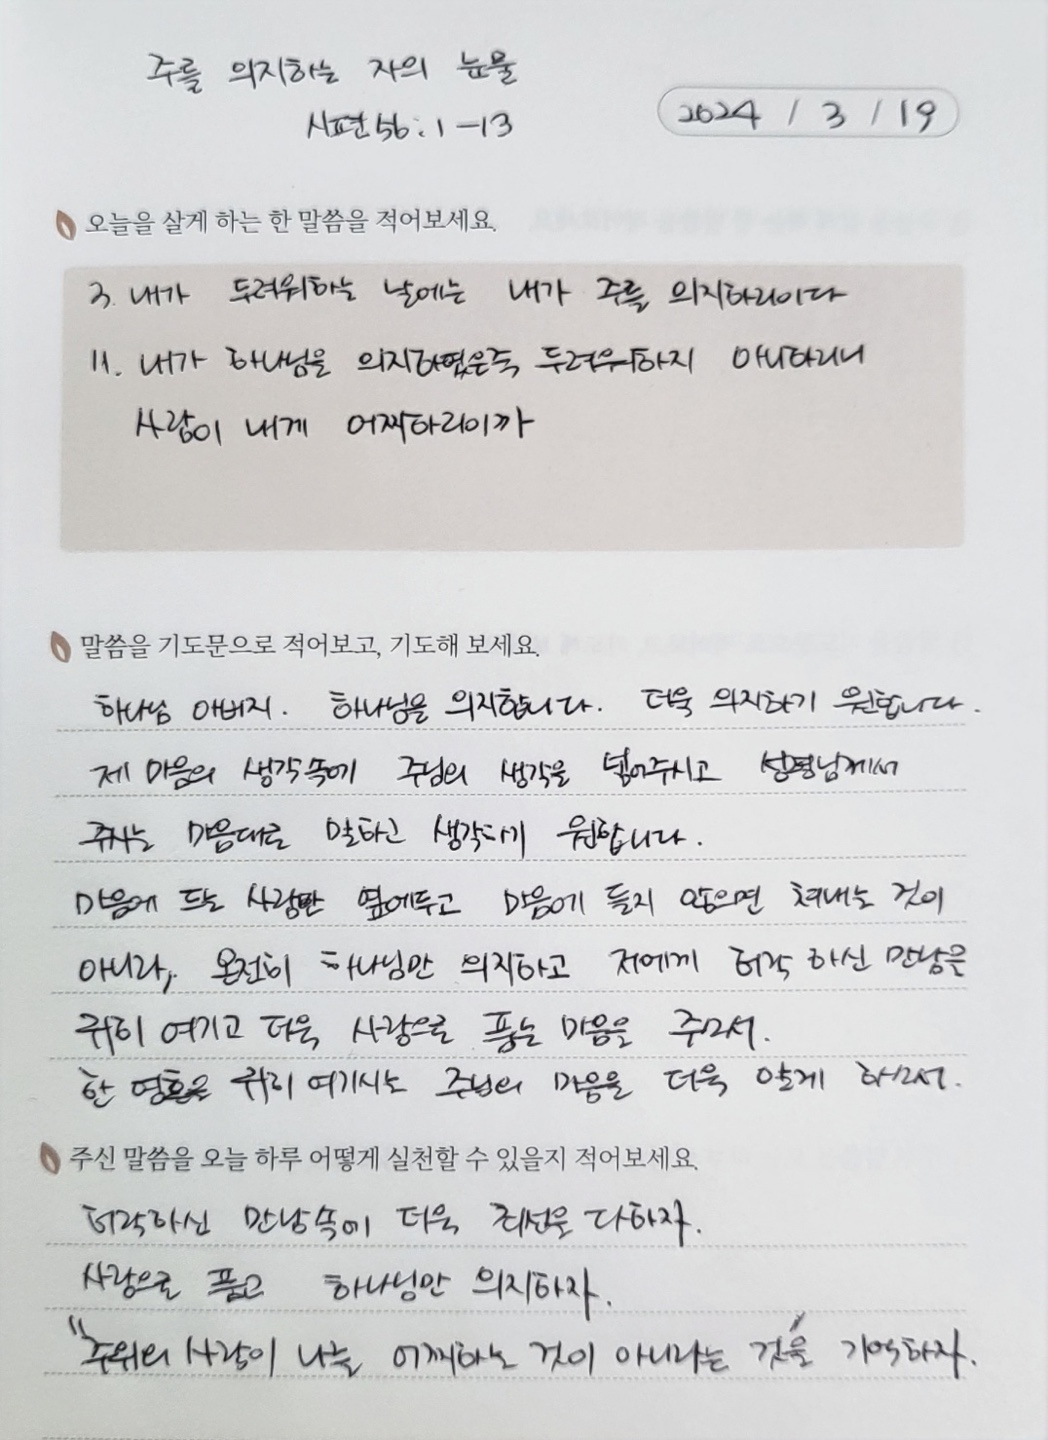 주를 의지하는 자의 눈물
시편 56:1-13
2024 / 3 / 19
오늘을 살게 하는 한 말씀을 적어보세요.
3. 내가 두려워하는 날에는 내가 주를 의지하리이다
11. 내가 하나님을 의지하였은즉 두려워하지 아니하리니
사람이 내게 어찌하리이까
말씀을 기도문으로 적어보고, 기도해 보세요.
하나님 아버지. 하나님을 의지합니다. 더욱 의지하기 원합니다.
제 마음의 생각속에 주님의 생각을 넣어주시고 성령님께서
주시는 마음대로 말하고 생각하기 원합니다.
마음에 드는 사람만 옆에두고 마음에 들지 않으면 쳐내는 것이
아니라, 온전히 하나님만 의지하고 저에게 허락 하신 만남을
귀히 여기고 더욱 사랑으로 품는 마음을 주소서.
한 영혼을 귀히 여기시는 주님의 마음을 더욱 알게 하소서.
주신 말씀을 오늘 하루 어떻게 실천할 수 있을지 적어보세요.
허락하신 만남속에 더욱 최선을 다하자.
사랑으로 품고 하나님만 의지하자.
"주위의 사람이 나를 어찌하는 것이 아니라는 것"을 기억하자.